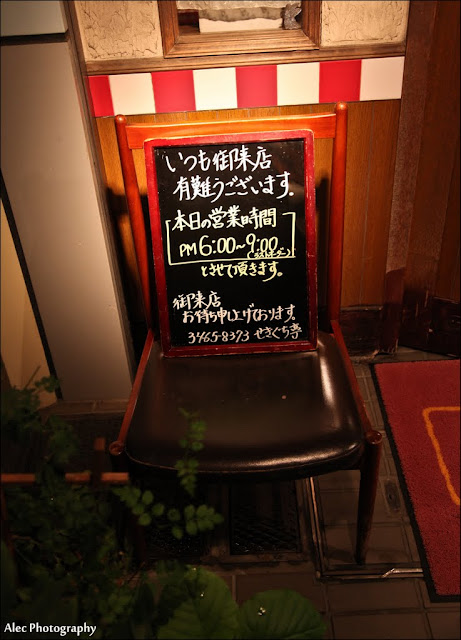 いつも御来店
有難うございます。
本日の営業時間
PM 6:00~9:00
(ラストオーダー)
とさせて頂きます。
御来店
お待ち申上げております。
3465-8373 せきぐち亭
Alec Photography